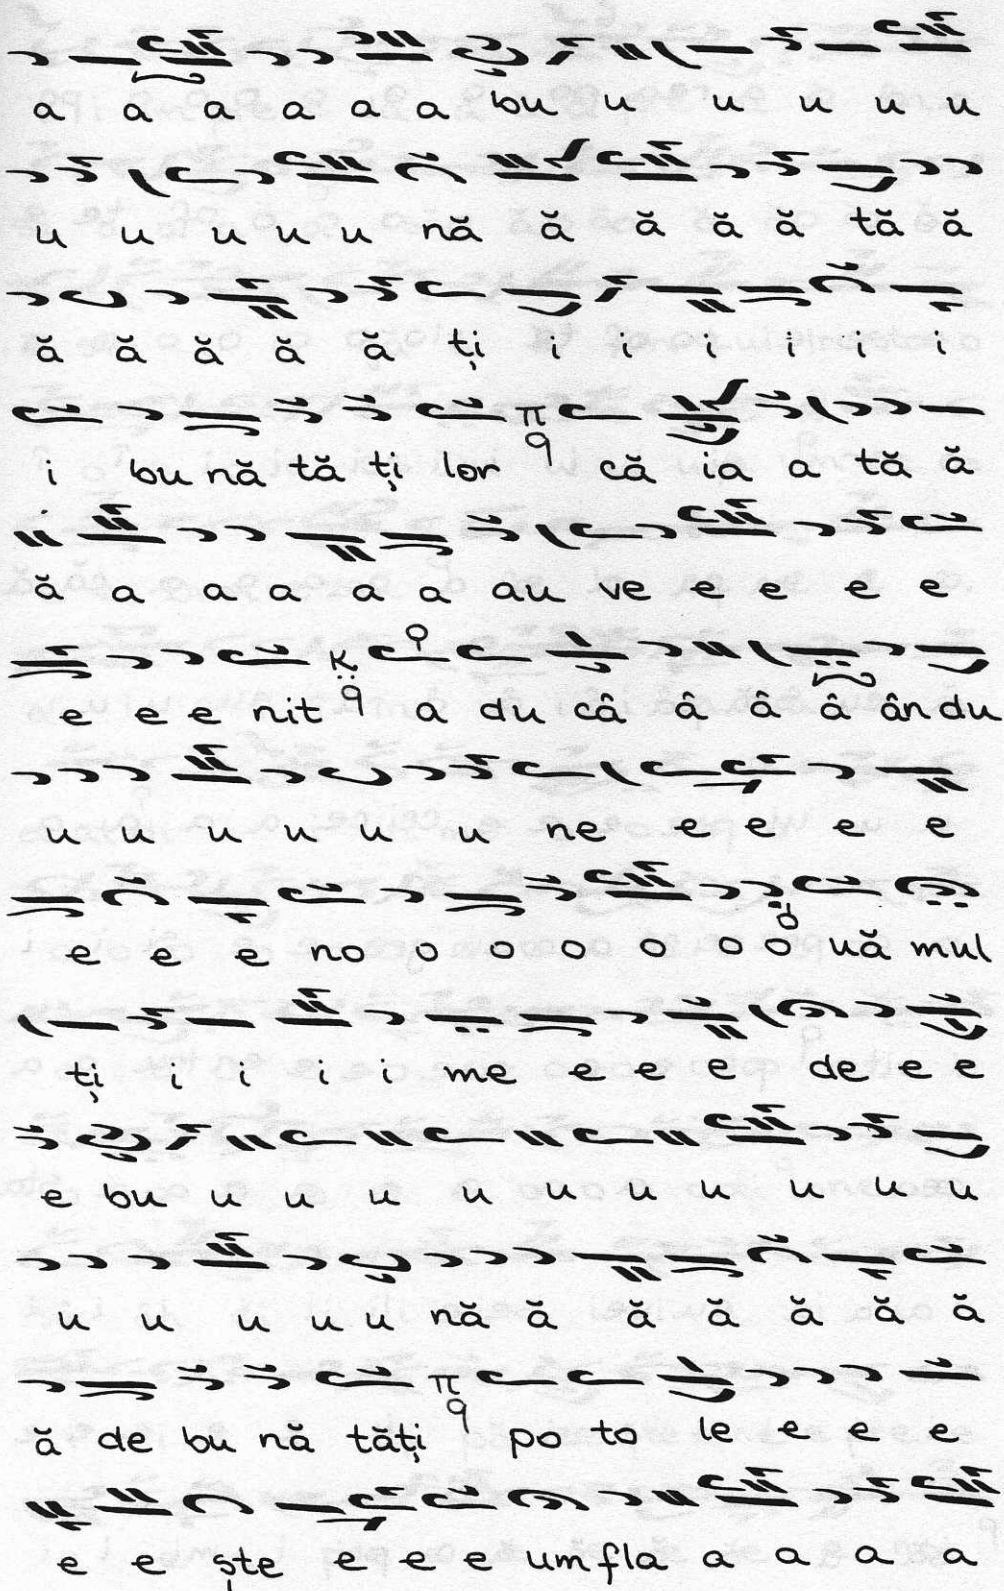 a a a a a a bu u u u u u
u u u u u nă ă ă ă ă tă ă
ă ă ă ă ă ți i i i i i i
π q
i bu nă tă ți lor că ia a tă ă
ă a a a a a au ve e e e e
e e e nit q a du câ â â â ân du
u u u u u u ne e e e e
e e e no o o o o o o uă mul
ți i i i i me e e e de e e
e bu u u u u u u u u u u
u u u u u nă ă ă ă ă ă ă
π q
ă de bu nă tăți po to le e e e
e e ște e e e um fla a a a a